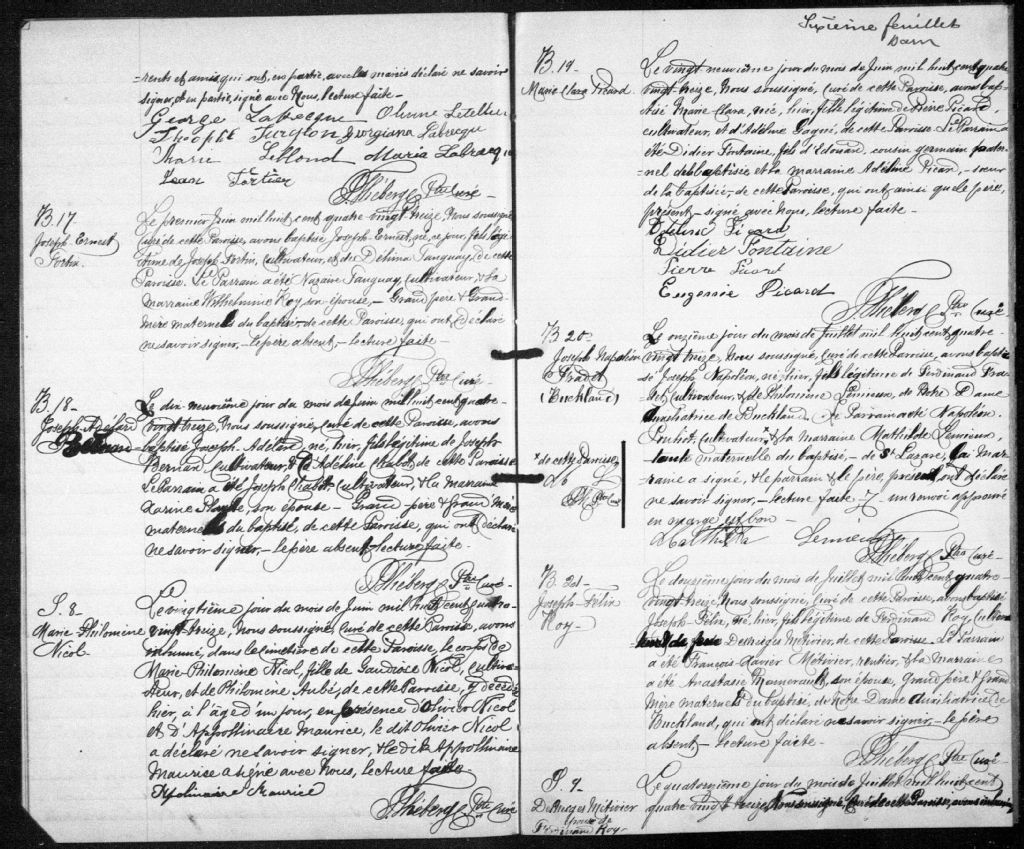 =rents et amis qui ont, en partie, avec les mariés déclaré ne savoir
signer, et en partie, signé avec Nous, lecture faite-
George Labrecque Olevine Letellier
Théophile Turgeon Georgiana Labrecque
Marie Leblond Maria Labrecque
Jean Fortier
Ptre Curé-
B. 17
Joseph Ernest
Fortin.
Le premier Juin mil huit cent quatre-vingt treize, Nous soussigné
Curé de cette Paroisse, avons baptisé Joseph Ernest, né, ce jour, fils légi-
time de Joseph Fortin, Cultivateur, et de Delima Tanguay, de cette
Paroisse. Le Parrain a été Nazaire Tanguay, Cultivateur, & la
Marraine Wilhelmine Roy, son épouse, - Grand père & Grand-
mère maternels du baptisé de cette Paroisse, qui ont, déclaré
ne savoir signer. - Le père absent, - lecture faite-
Ptre Curé-
B. 18-
Joseph Adélard
Le dix-neuvième jour du mois de Juin mil huit cent quatre-
vingt treize, Nous soussigné, Curé de cette Paroisse, avons
baptisé Joseph Adélard, né, hier, fils légitime de Joseph
cultivateur, & d'Adéline Chabot de cette Paroisse
Le Parrain a été Joseph Chabot, Cultivateur, & la marraine
son épouse - Grand-père & Grand Mère
maternels du baptisé, de cette Paroisse, qui ont déclaré
ne savoir signer. - le père absent, lecture faite-
Ptre Curé-
S. 8-
Marie Philomène
Nicol-
Le vingtième jour du mois de Juin mil huit cent quatre-
vingt-treize, Nous soussigné, Curé de cette Paroisse, avons
inhumé, dans le cimetière de cette Paroisse, le corps de
Marie-Philomène Nicol, fille de Gaudiose Nicol, Cultiva-
teur, et de Philomène Aubé, de cette Paroisse, y décédée
hier, à l'âge d'un jour, en présence d'Olivier Nicol
et d'Appollinaire Maurice, le dit Olivier Nicol
a déclaré ne savoir signer, & le dit Appollinaire
Maurice a signé avec Nous, lecture faite
Apolinaire Maurice
Ptre Curé
Sixième feuillet
B. 19-
Marie Clara Picard
Le vingt neuvième jour du mois de Juin, mil huit cent quatre
vingt treize, Nous soussigné, Curé de cette Paroisse, avons bap-
tisé Marie Clara, née, hier, fille légitime de Pierre Picard,
cultivateur, et d'Adéline Gagné, de cette Paroisse - Le Parrain a
été Didier Fontaine, fils d'Edouard, cousin germain pater-
nel de la baptisée et la marraine Adéline Picard, - sœur
de la baptisée - de cette Paroisse, qui ont ainsi que le père,
présent - signé avec Nous, lecture faite-
Adeline Picard
Didier Fontaine
Pierre Picard
Eugenie Picard
Ptre Curé
B 20-
Joseph Napoléon
Pradet
(Buckland)
Le onzième jour du mois de Juillet mil huit cent quatre-
vingt treize, Nous soussigné, Curé de cette Paroisse, avons bapti-
sé Joseph Napoléon, né, hier, fils légitime de Ferdinand Pra-
det, Cultivateur, & de Philomène Lemieux, de Notre Dame
Auxiliatrice de Buckland. - Le Parrain a été Napoléon
Pouliot, Cultivateur,* & la marraine Mathilde Lemieux,
tante maternelle du baptisé - de St Lazare, la Mar-
raine a signé, & le parrain & le père, présent, ont déclaré
ne savoir signer, - lecture faite - un renvoi approuvé
en marge est bon -
* de cette Paroisse
Mathilda Lemieux
Ptre Curé-
B. 21-
Joseph Félix
Roy-
Le douzième jour du mois de Juillet mil huit cent quatre-
vingt-treize, Nous soussigné, Curé de cette Paroisse, avons baptisé
Joseph Félix, né, hier, fils légitime de Ferdinand Roy, Cultiva-
Desneiges Métivier, de cette Paroisse - Le Parrain
a été François-Xavier Métivier, rentier, & la marraine
a été Anastasie son épouse, Grand père & Grand
Mère maternels du baptisé, de Notre Dame Auxiliatrice de
Buckland, qui ont déclaré ne savoir signer - le père
absent, - lecture faite -
Ptre Curé
S. 9-
D. Neiges Métivier
épouse de
Ferdinand Roy-
Le quatorzième jour du mois de Juillet mil huit cent
quatre vingt treize, Nous soussigné, Curé de cette Paroisse, avons inhumé,